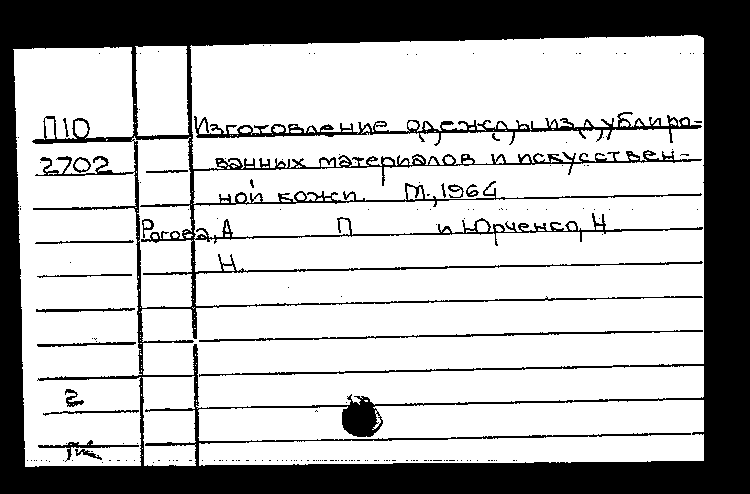 П10
Изготовление одежды из дублиро-
2702
ванных материалов и искусствен-
ной кожи. М., 1964
Рогова, А П и Юрченко, Н
Н.
2